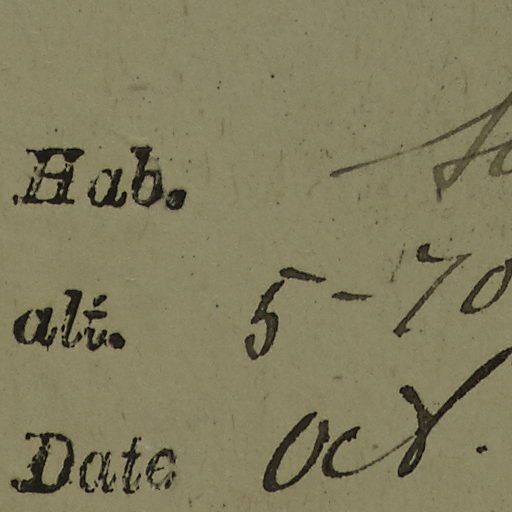 Hab.
alt. 5-70
Date Oct.